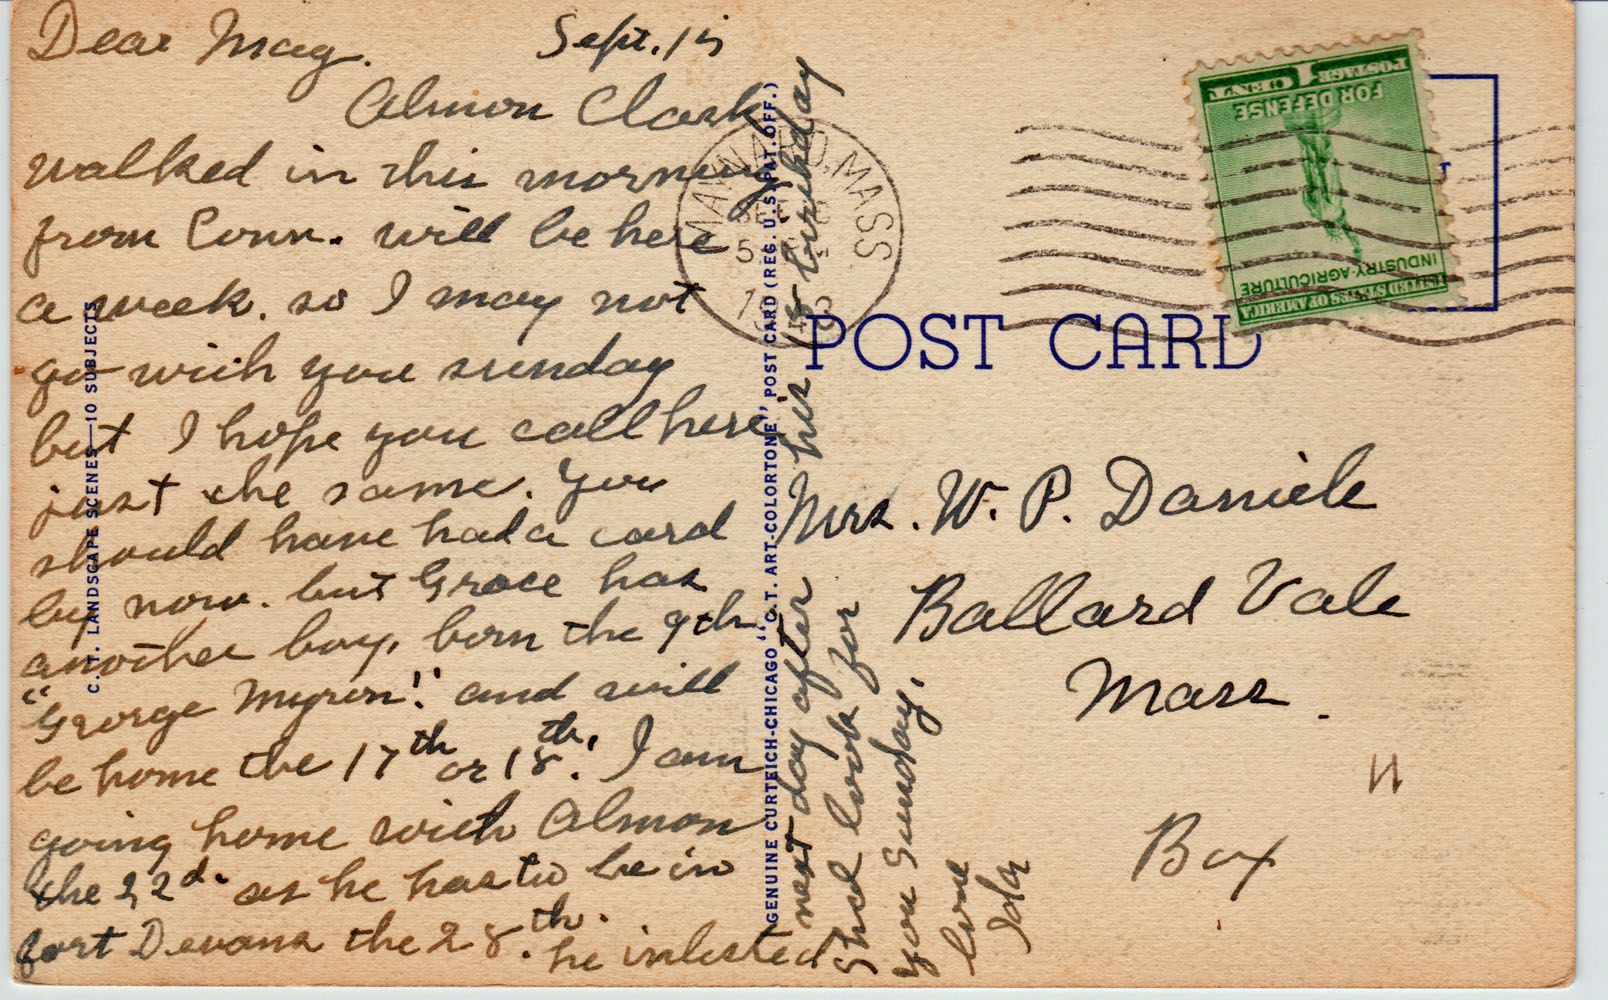 Dear Mag. Sept. 15
Almon Clark
walked in this morning
from Conn. will be here
a week. so I may not
go with you sunday
but I hope you call here
just the same. You
should have had a card
by now. but Grace has
another boy, born the 9th
"George Myron!" and will
be home the 17th or 18th. I am
going home with Almon
the 22d. as he has to be in
fort Devans the 28th. he inlisted
next day after his birthday
Shal look for
you Sunday.
Love
Iola
C. T. LANDSCAPE SCENES—10 SUBJECTS
GENUINE CURTEICH-CHICAGO "C. T. ART-COLORTONE" POST CARD (REG. U.S. PAT. OFF.)
MAYNARD, MASS
5
POST CARD
UNITED STATES OF AMERICA
INDUSTRY-AGRICULTURE
FOR DEFENSE
1
POSTAGE CENT
Mrs. W. P. Daniels
Ballard Vale
Mass.
11
Box